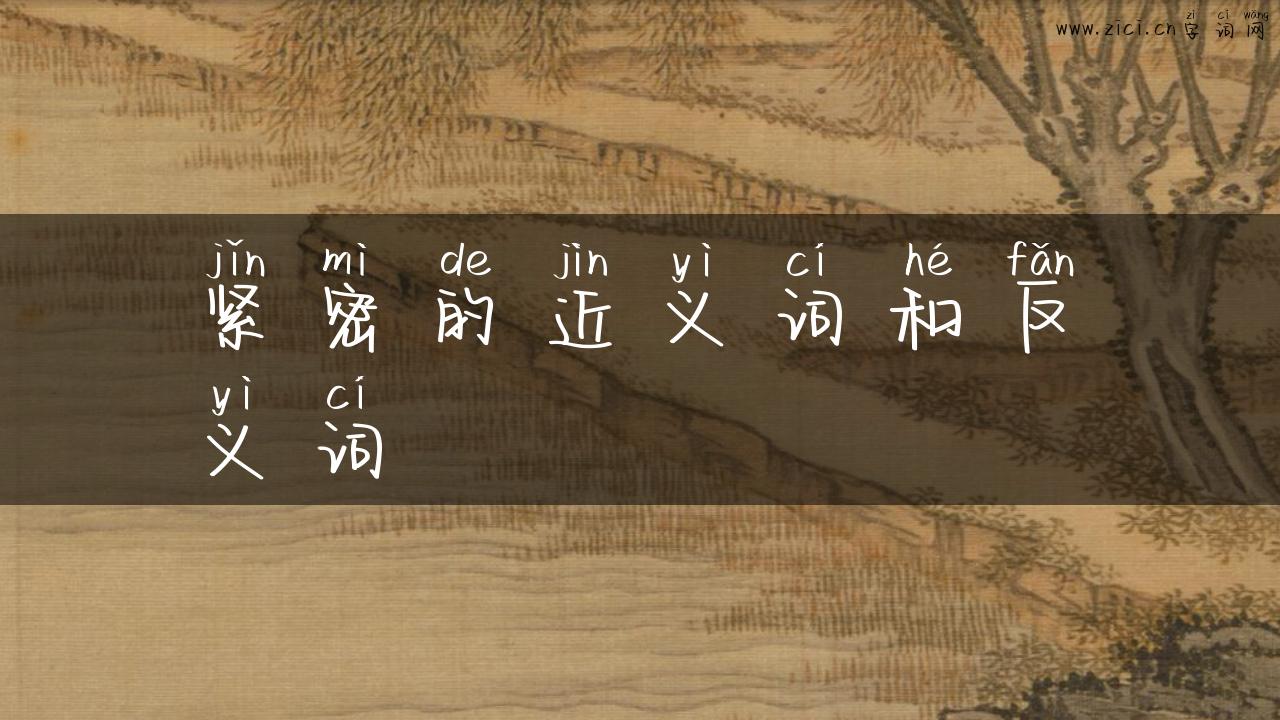 zì cí wǎng
www.zici.cn字词网
jǐn mì de jìn yì cí hé fǎn
紧密的近义词和反
yì cí
义词